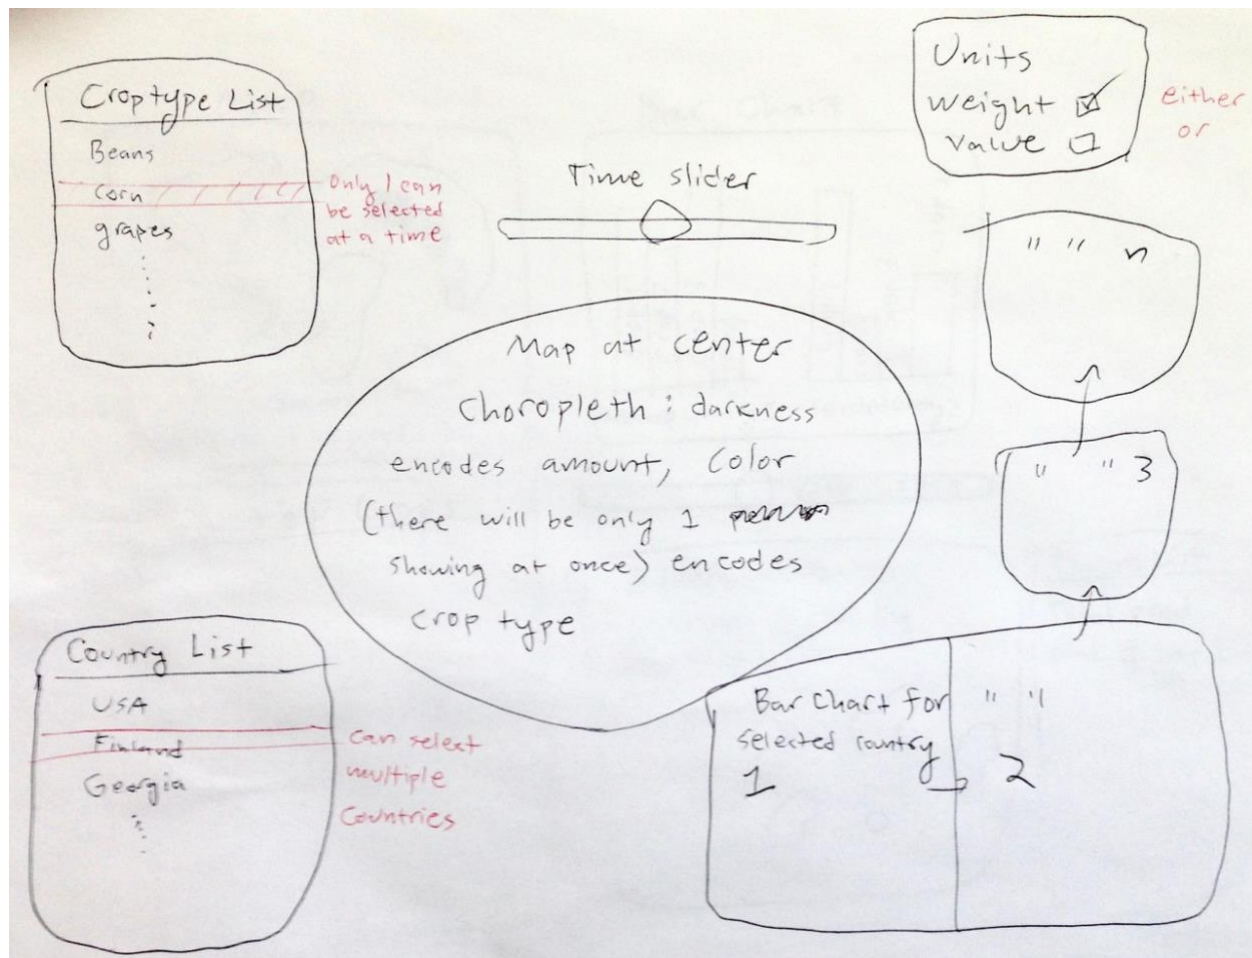 Croptype List
Beans
Corn
grapes
only 1 can
be selected
at a time
Time slider
Units
Weight
Value
either
or
" " n
" " 3
Map at center
Choropleth : darkness
encodes amount, Color
(there will be only 1
showing at once) encodes
crop type
Country List
USA
Finland
Georgia
can select
multiple
Countries
Bar Chart for
selected country
1
" "
2